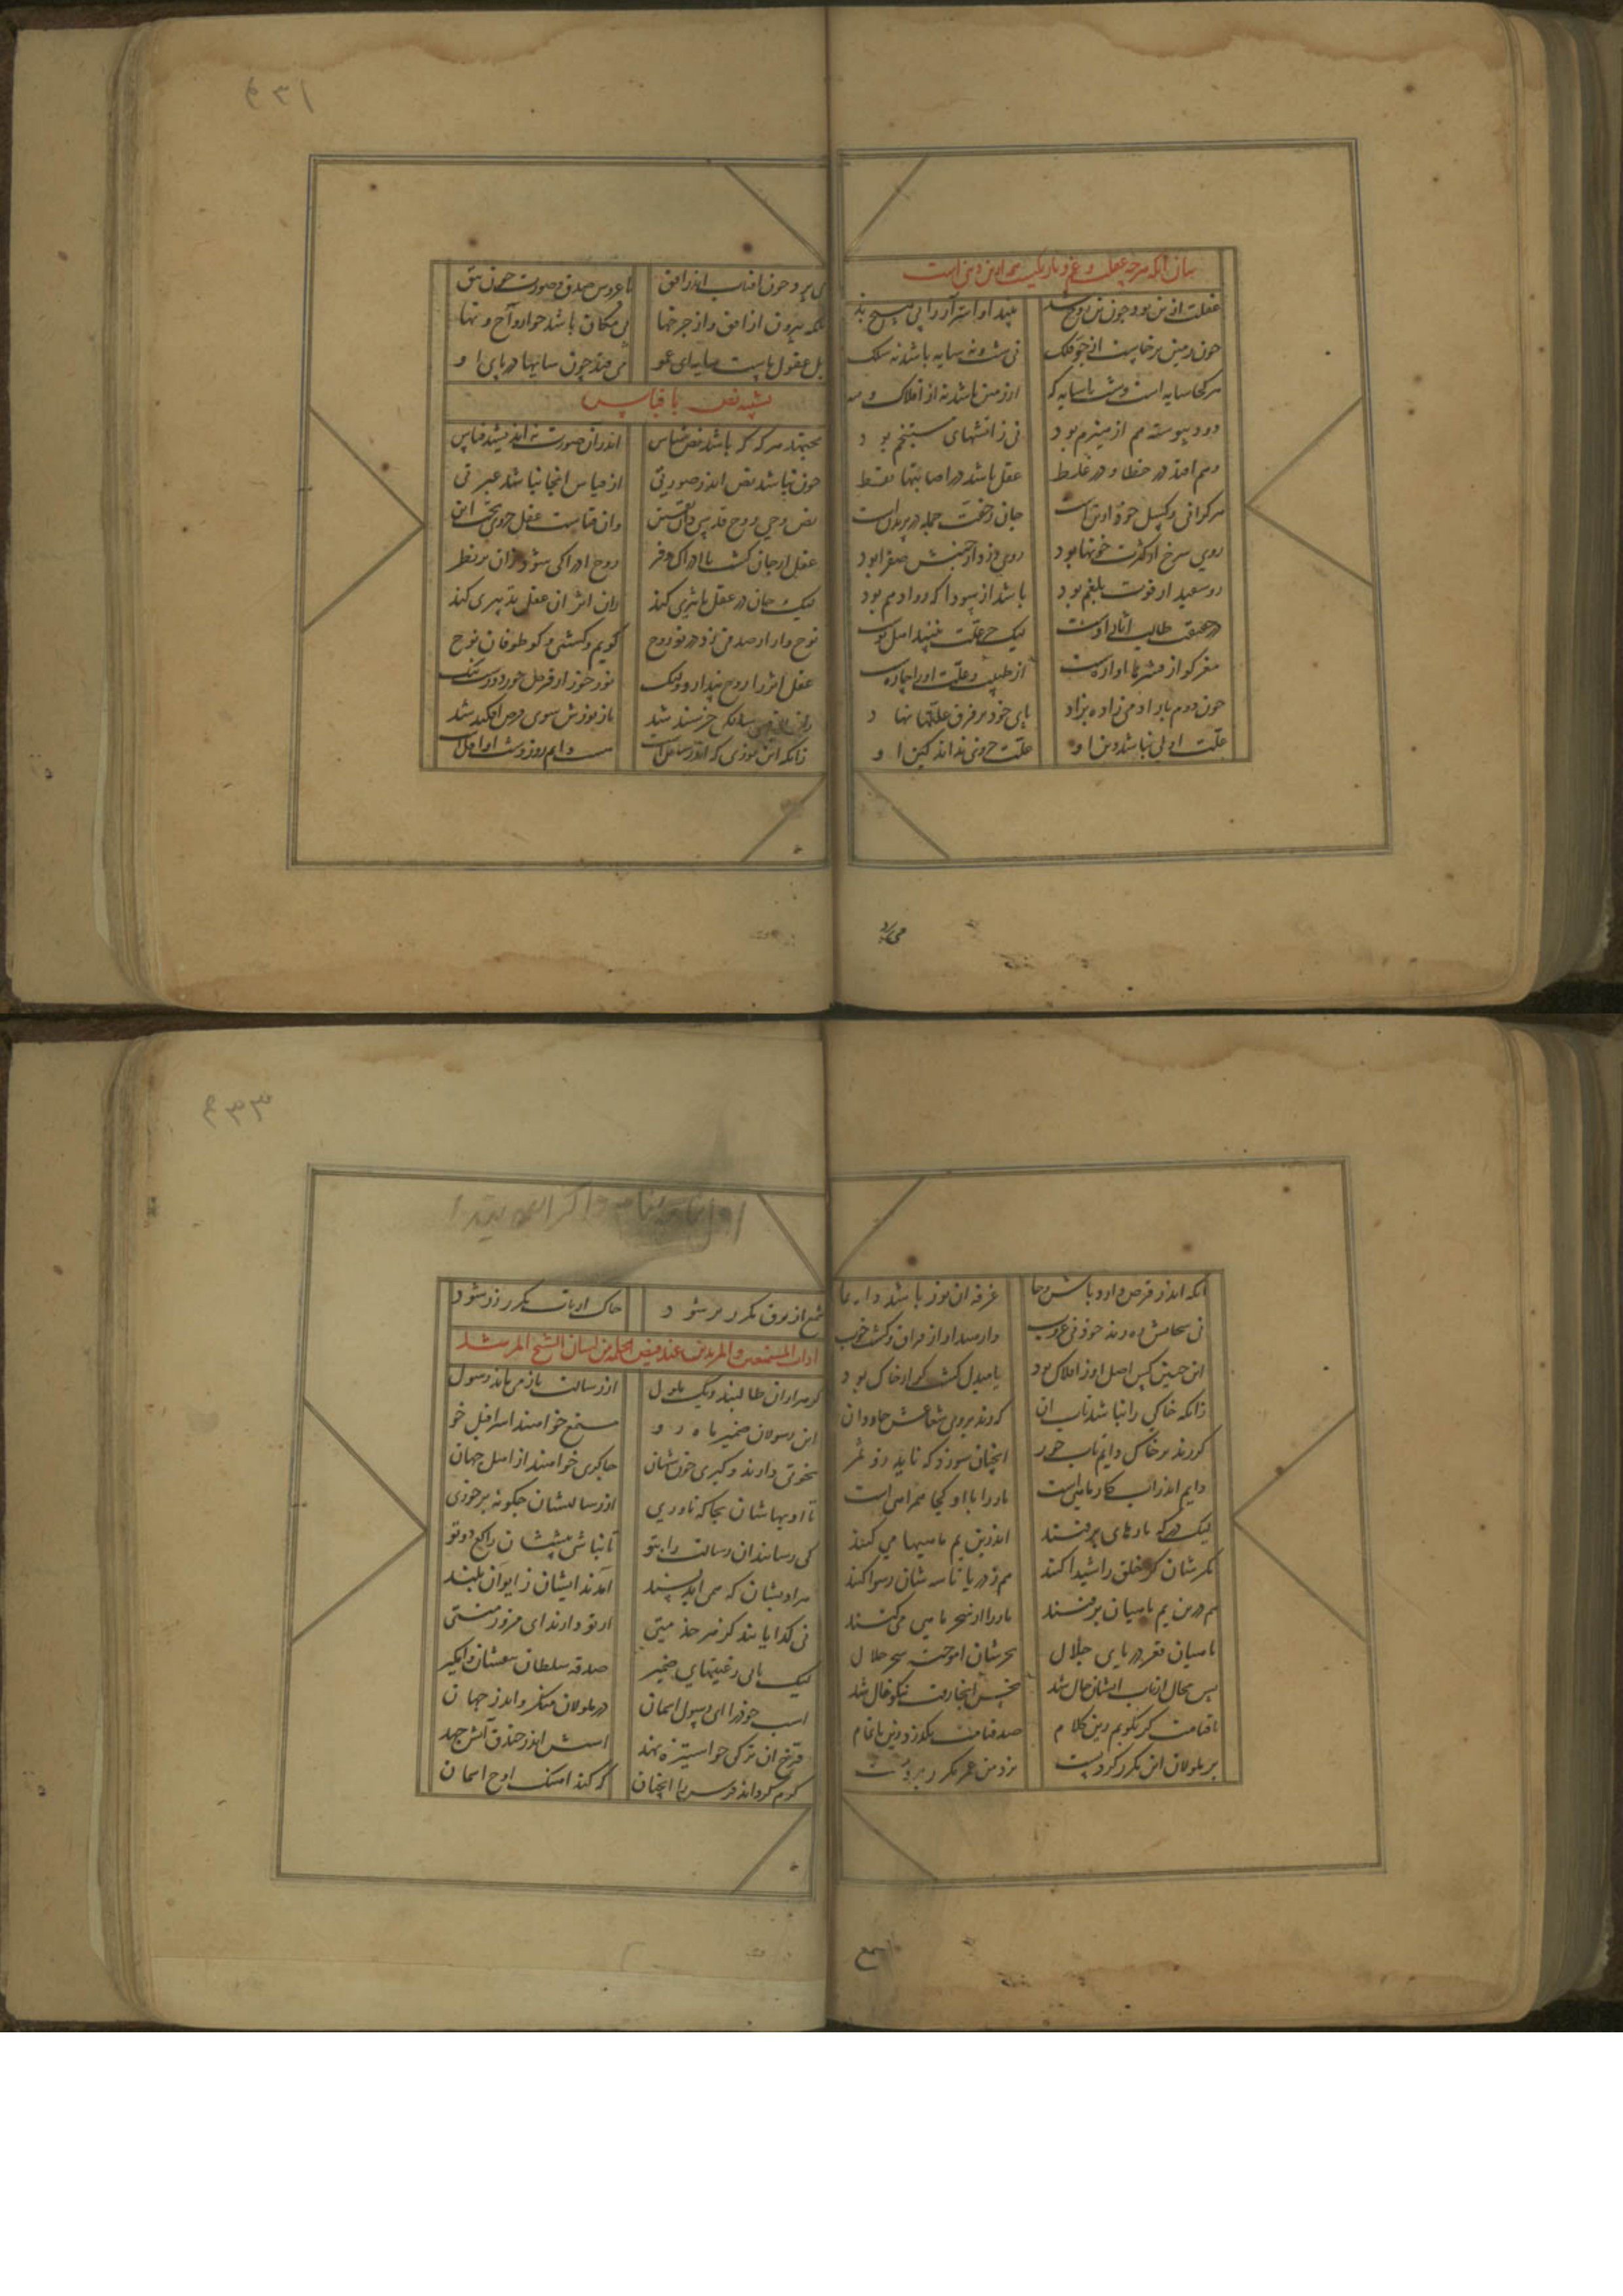 بیان آنکه هرچه غفلت و غم و تاریکیست همه از تن است
غفلت از تن بود چون تن روح شد بیند او اسرار را بی هیچ بد
چون زمین برخاست از جو فلک نی شب و نه سایه باشد نه
هر کجا سایه است و شب یا سایه که از زمین باشد نه از افلاک و مه
دود پیوسته هم از هیزم بود نی ز آتشهای مستنجم بود
وهم افتد در خطا و در غلط عقل باشد در اصابتها فقط
هر گرانی و کسل خود از تنست جان ز خفت جمله در پریدنست
روی سرخ از کثرت خونها بود روی زرد از جنبش صفرا بود
رو سفید از قوت بلغم بود باشد از سودا که رو ادهم بود
در حقیقت خالق آثار اوست لیک جز علت نبیند اهل پوست
مغز کو از پوستها آواره نیست از طبیب و علت او را چاره نیست
چون دوم بار آدمی زاده بزاد پای خود بر فرق علتها نهاد
علت اولی نباشد دین او علت جزوی ندارد کین او
می‌پرد
می پرد چون آفتاب اندر افق با عروس صدق و صورت چون تتق
بلکه بیرون از افق وز چرخها بی مکان باشد چو ارواح و نهی
بل عقول ماست سایهای او می فتد چون سایها در پای او
تشبیه نص با قیاس
مجتهد هر گه که باشد نص شناس اندر آن صورت نه اندیشد قیاس
چون نباشد نص اندر صورتی از قیاس آنجا نباشد عبرتی
نص وحی روح قدسی دان یقین وان قیاس عقل جزوی تحت این
عقل از جان گشت با ادراک و فر روح او را کی شود زیر نظر
لیک جان در عقل تاثیری کند زان اثر آن عقل تدبیری کند
نوح وار ار صدقی زد در تو روح کو یم و کشتی و کو طوفان نوح
عقل اثر را روح پندارد ولیک نور خور از قرص خور دورست نیک
زان به قرصی سالکی خرسند شد تا ز نورش سوی قرص افکند شد
زانکه این نوری که اندر سافلست نیست دایم روز و شب او آفلست
آنکه اندر قرص دارد باش و جا غرقه آن نور باشد دایما
نی سحابش ره زند خود نی غروب وارهید او از فراق و کشت خوب
این چنین کس اصل او ز افلاک بود یا مبدل گشت گر از خاک بود
زانکه خاکی را نباشد تاب آن که زند بر وی شعاعش جاودان
گر زند بر خاک دایم تاب خور آنچنان سوزد که ناید زو ثمر
دایم اندر آب کار ماهیست مار را با او کجا همراهیست
لیک در که مارهای پر فنند اندرین یم ماهیها می کنند
مکرشان گر خلق را شیدا کند هم ز دریا تاسه شان رسوا کند
هم درین یم ماهیان پر فنند مار را از سحر ماهی می کنند
ماهیان قعر دریای جلال بحرشان آموخته سحر حلال
پس محال از تاب ایشان حال شد نحس آنجا رفت نیکو فال شد
تا قیامت گر بگویم زین کلام صد قیامت بگذرد وین ناتمام
بر ملولان این مکرر کردنست نزد من عمر مکرر بردنست
شمع
شمع از برق مکرر بر شود خاک از تاب مکرر زر شود
آداب المستمعین و المریدین عند فیض الحکمة من لسان الشیخ المرشد
گر هزاران طالبند و یک ملول از رسالت باز می ماند رسول
این رسولان ضمیر رازگو مستمع خواهند اسرافیل خو
نخوتی دارند و کبری چون شهان چاکری خواهند از اهل جهان
تا ادبهاشان بجاگه ناوری از رسالتشان چگونه برخوری
کی رسانند آن رسالت را بتو تا نباشی پیششان راکع دوتو
هر ادبشان که همی آید پسند کامدند ایشان ز ایوان بلند
نی گدایانند کز هر خدمتی از تو دارند ای مزور منتی
لیک با بی رغبتیهای ضمیر صدقه سلطان بیفشان وامگیر
اسب خود را ای رسول آسمان در ملولان منگر و اندر جهان
فرخ آن ترکی که استیزه نهد اسبش اندر خندق آتش جهد
گرم گرداند فرس را آنچنان که کند آهنگ اوج آسمان